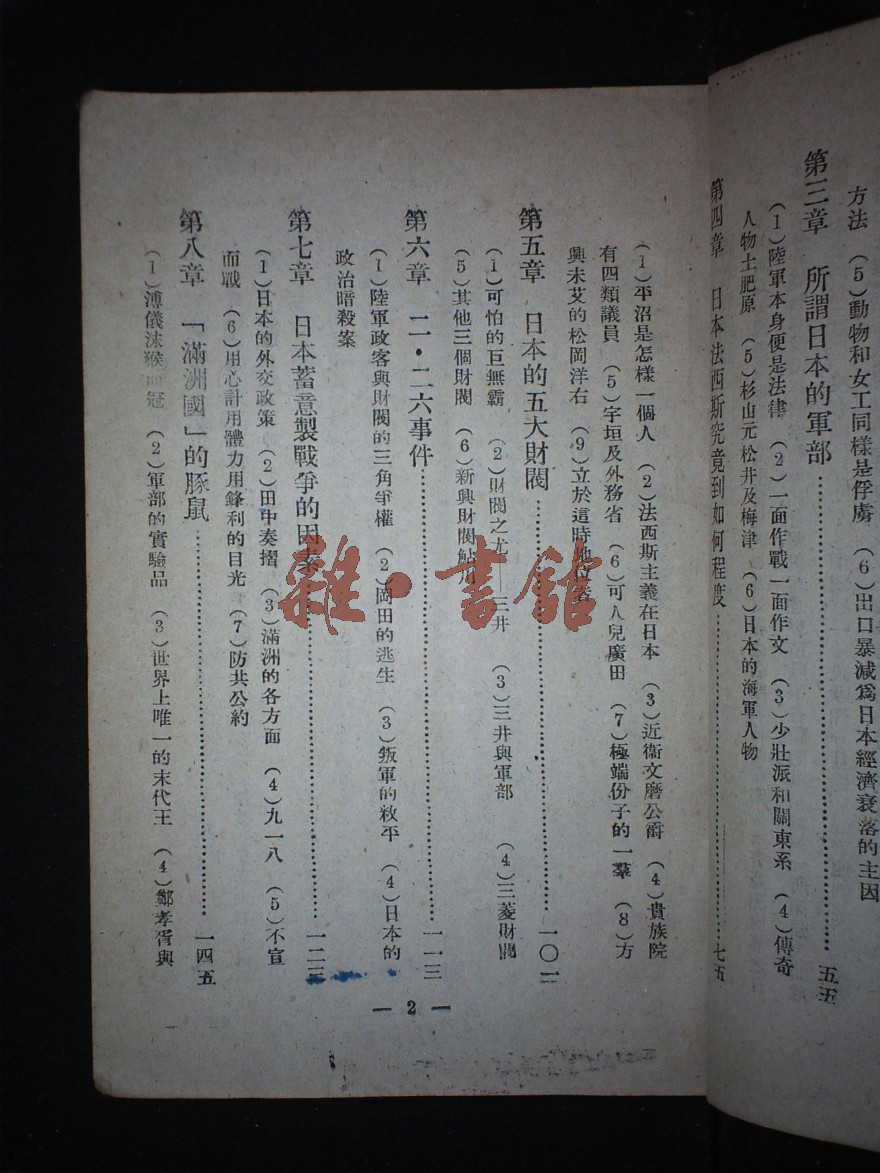 方法 (5)動物和女工同樣是俘虜 (6)出口暴減爲日本經濟衰落的主因
第三章 所謂日本的軍部……五五
(1)陸軍本身便是法律 (2)一面作戰一面作文 (3)少壯派和關東系 (4)傳奇
人物土肥原 (5)杉山元松井及梅津 (6)日本的海軍人物
第四章 日本法西斯究竟到如何程度……七五
(1)平沼是怎樣一個人 (2)法西斯主義在日本 (3)近衞文磨公爵 (4)貴族院
有四類議員 (5)宇垣及外務省 (6)可人兒廣田 (7)極端份子的一羣 (8)方
興未艾的松岡洋右 (9)立於這時地位者
第五章 日本的五大財閥……一〇一
(1)可怕的巨無霸 (2)財閥之尤 三井 (3)三井與軍部 (4)三菱財閥
(5)其他三個財閥 (6)新興財閥鮎川
第六章 二・二六事件……一一三
(1)陸軍政客與財閥的三角爭權 (2)岡田的逃生 (3)叛軍的敉平 (4)日本的
政治暗殺案
第七章 日本蓄意製戰爭的因素……一二三
(1)日本的外交政策 (2)田中奏摺 (3)滿洲的各方面 (4)九一八 (5)不宣
而戰 (6)用心計用體力用鋒利的目光 (7)防共公約
第八章 「滿洲國」的豚鼠……一四五
(1)溥儀沐猴而冠 (2)軍部的實驗品 (3)世界上唯一的末代王 (4)鄭孝胥與
— 2 —
雜・書館